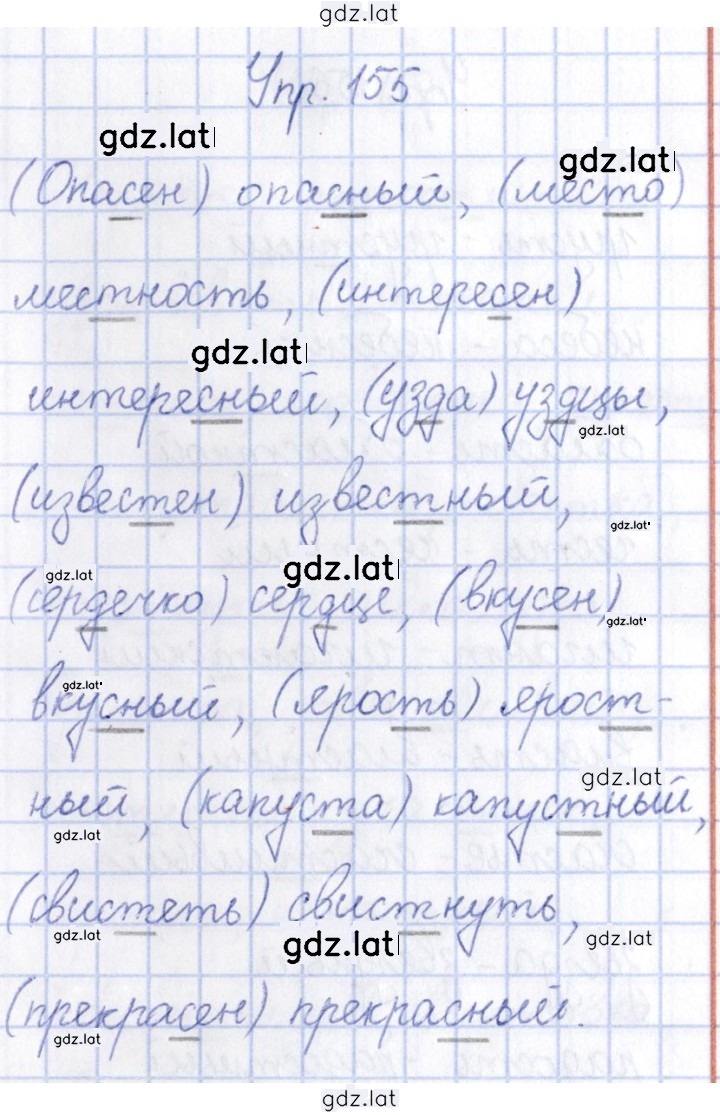 gdz.lat
Упр. 155
gdz.lat
gdz.lat
(Опасен) опасный, (место)
местность, (интересен)
gdz.lat
интересный, (узда) уздцы,
gdz.lat
(известен) известный,
gdz.lat
gdz.lat
gdz.lat
(сердечко) сердце, (вкусен)
gdz.lat
gdz.lat
вкусный, (ярость) ярост-
gdz.lat
ный, (капуста) капустный,
gdz.lat
(свистеть) свистнуть,
gdz.lat
gdz.lat
gdz.lat
(прекрасен) прекрасный.
gdz.lat
gdz.lat